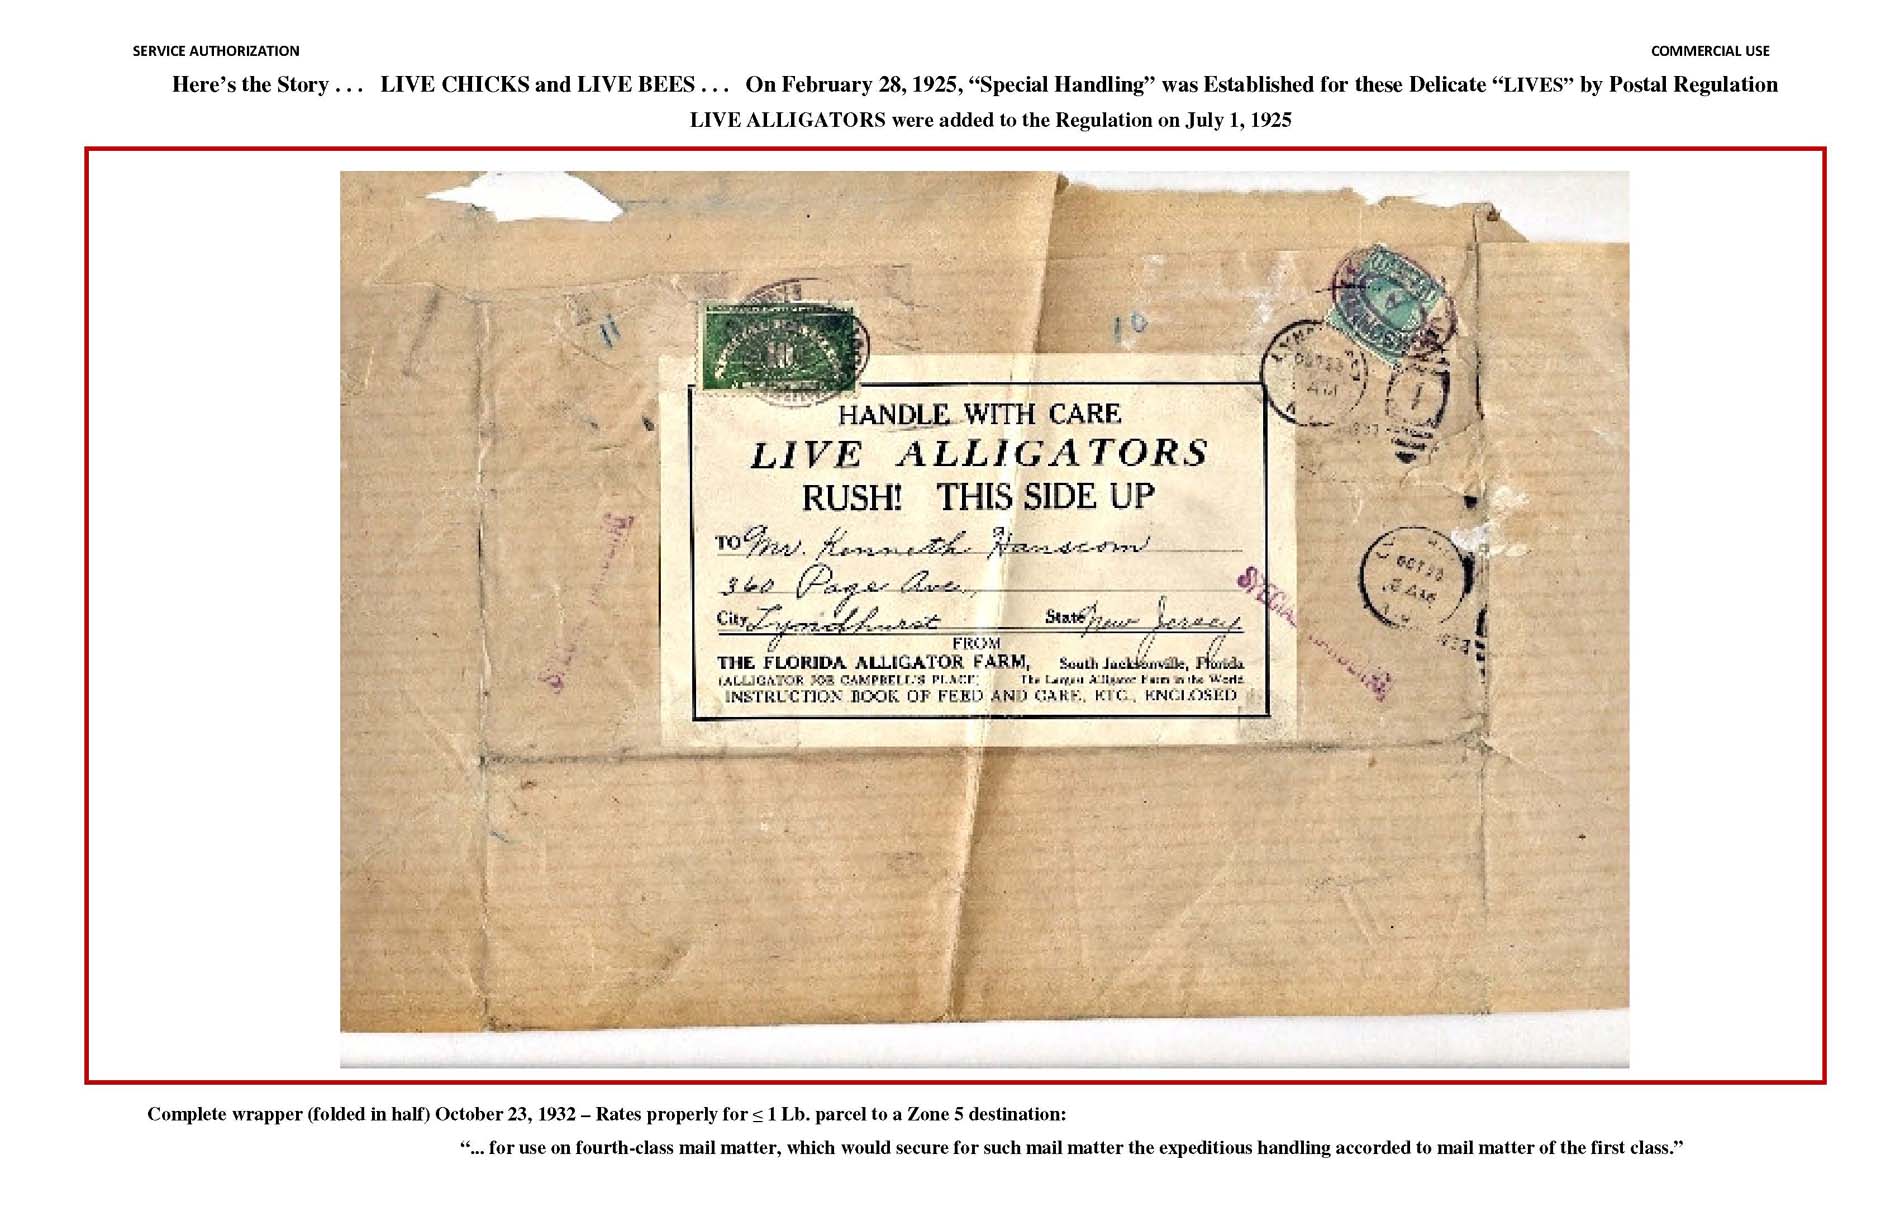 SERVICE AUTHORIZATION
COMMERCIAL USE
Here’s the Story . . . LIVE CHICKS and LIVE BEES . . . On February 28, 1925, “Special Handling” was Established for these Delicate “LIVES” by Postal Regulation
LIVE ALLIGATORS were added to the Regulation on July 1, 1925
11
10
OCT 23
AM
1
HANDLE WITH CARE
LIVE ALLIGATORS
RUSH! THIS SIDE UP
TO Mr. Kenneth Hanscom
360 Page Ave.,
City Lyndhurst State New Jersey
FROM
THE FLORIDA ALLIGATOR FARM, South Jacksonville, Florida
(ALLIGATOR JOE CAMPBELL'S PLACE) The Largest Alligator Farm in the World
INSTRUCTION BOOK OF FEED AND CARE, ETC., ENCLOSED
SPECIAL HANDLING
OCT 23
AM
Complete wrapper (folded in half) October 23, 1932 – Rates properly for ≤ 1 Lb. parcel to a Zone 5 destination:
“... for use on fourth-class mail matter, which would secure for such mail matter the expeditious handling accorded to mail matter of the first class.”